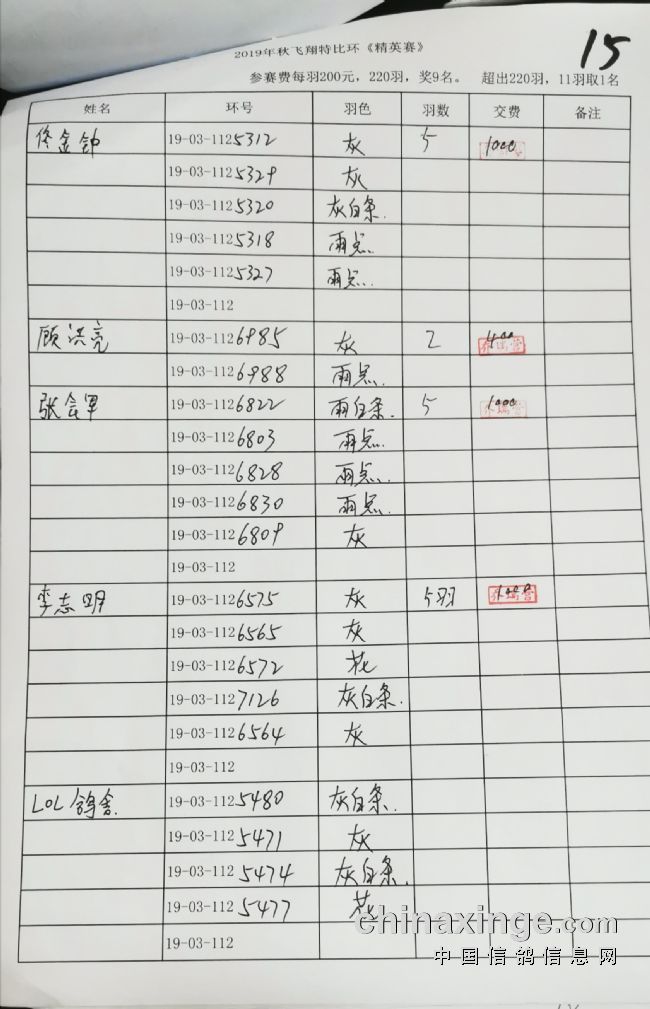 15
2019年秋飞翔特比环《精英赛》
参赛费每羽200元，220羽，奖9名。 超出220羽，11羽取1名
姓名 环号 羽色 羽数 交费 备注
佟金钟 19-03-1125312 灰 5 1000
19-03-1125329 灰
19-03-1125320 灰白条.
19-03-1125318 雨点.
19-03-1125327 雨点.
19-03-112
顾洪亮 19-03-1126985 灰 2 400
19-03-1126988 雨点.
张会军 19-03-1126822 雨白条. 5 1000
19-03-1126803 雨点.
19-03-1126828 雨点.
19-03-1126830 雨点.
19-03-1126809 灰
19-03-112
李志明 19-03-1126575 灰 5羽 1000
19-03-1126565 灰
19-03-1126572 花
19-03-1127126 灰白条.
19-03-1126564 灰
19-03-112
LOL鸽舍. 19-03-1125480 灰白条.
19-03-1125471 灰
19-03-1125474 灰白条.
19-03-1125477 花
19-03-112
chinaxinge.com
中国信鸽信息网